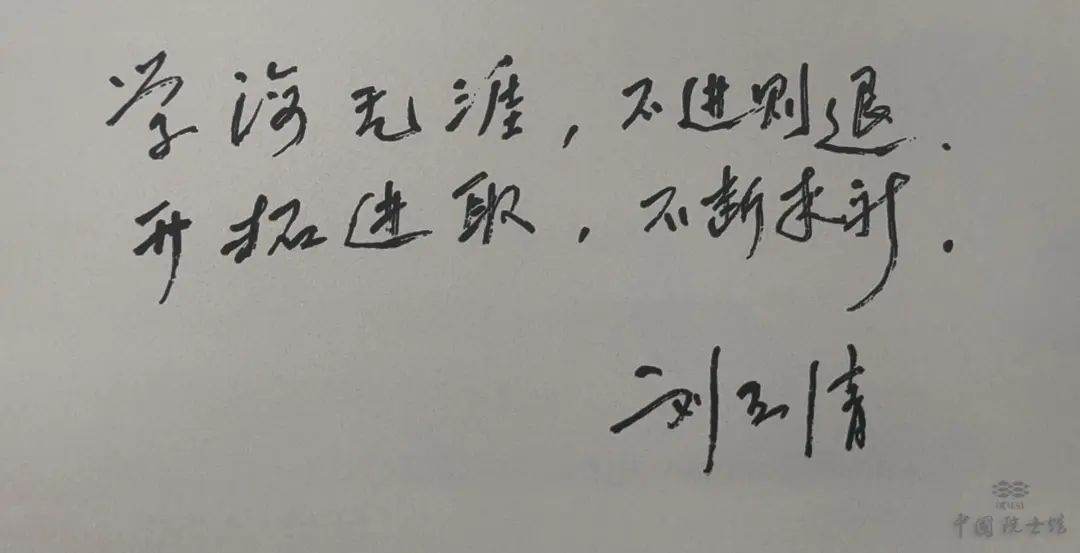 学海无涯，不进则退．
开拓进取，不断求新．
刘玉清
中国院士馆